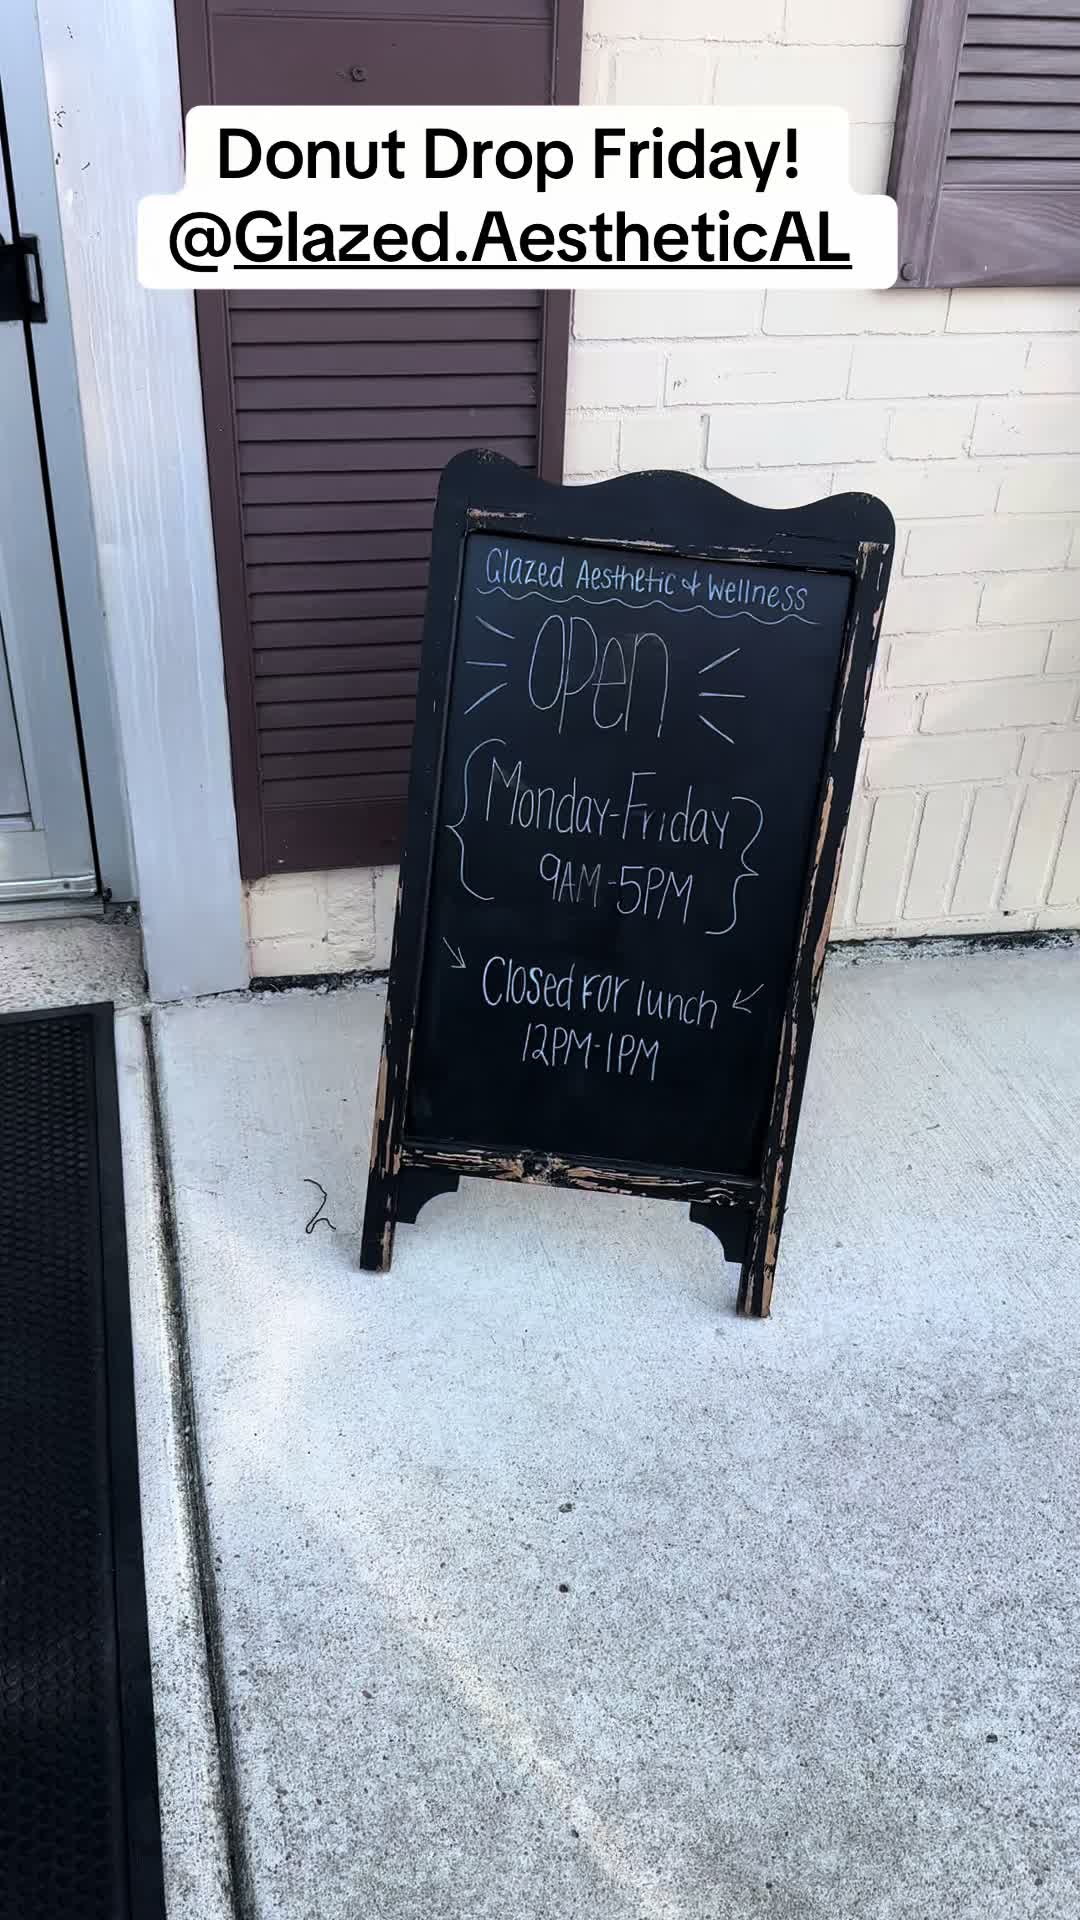 Donut Drop Friday!
@Glazed.AestheticAL
Glazed Aesthetic & Wellness
OPen
Monday-Friday
9AM-5PM
Closed For lunch
12PM-1PM